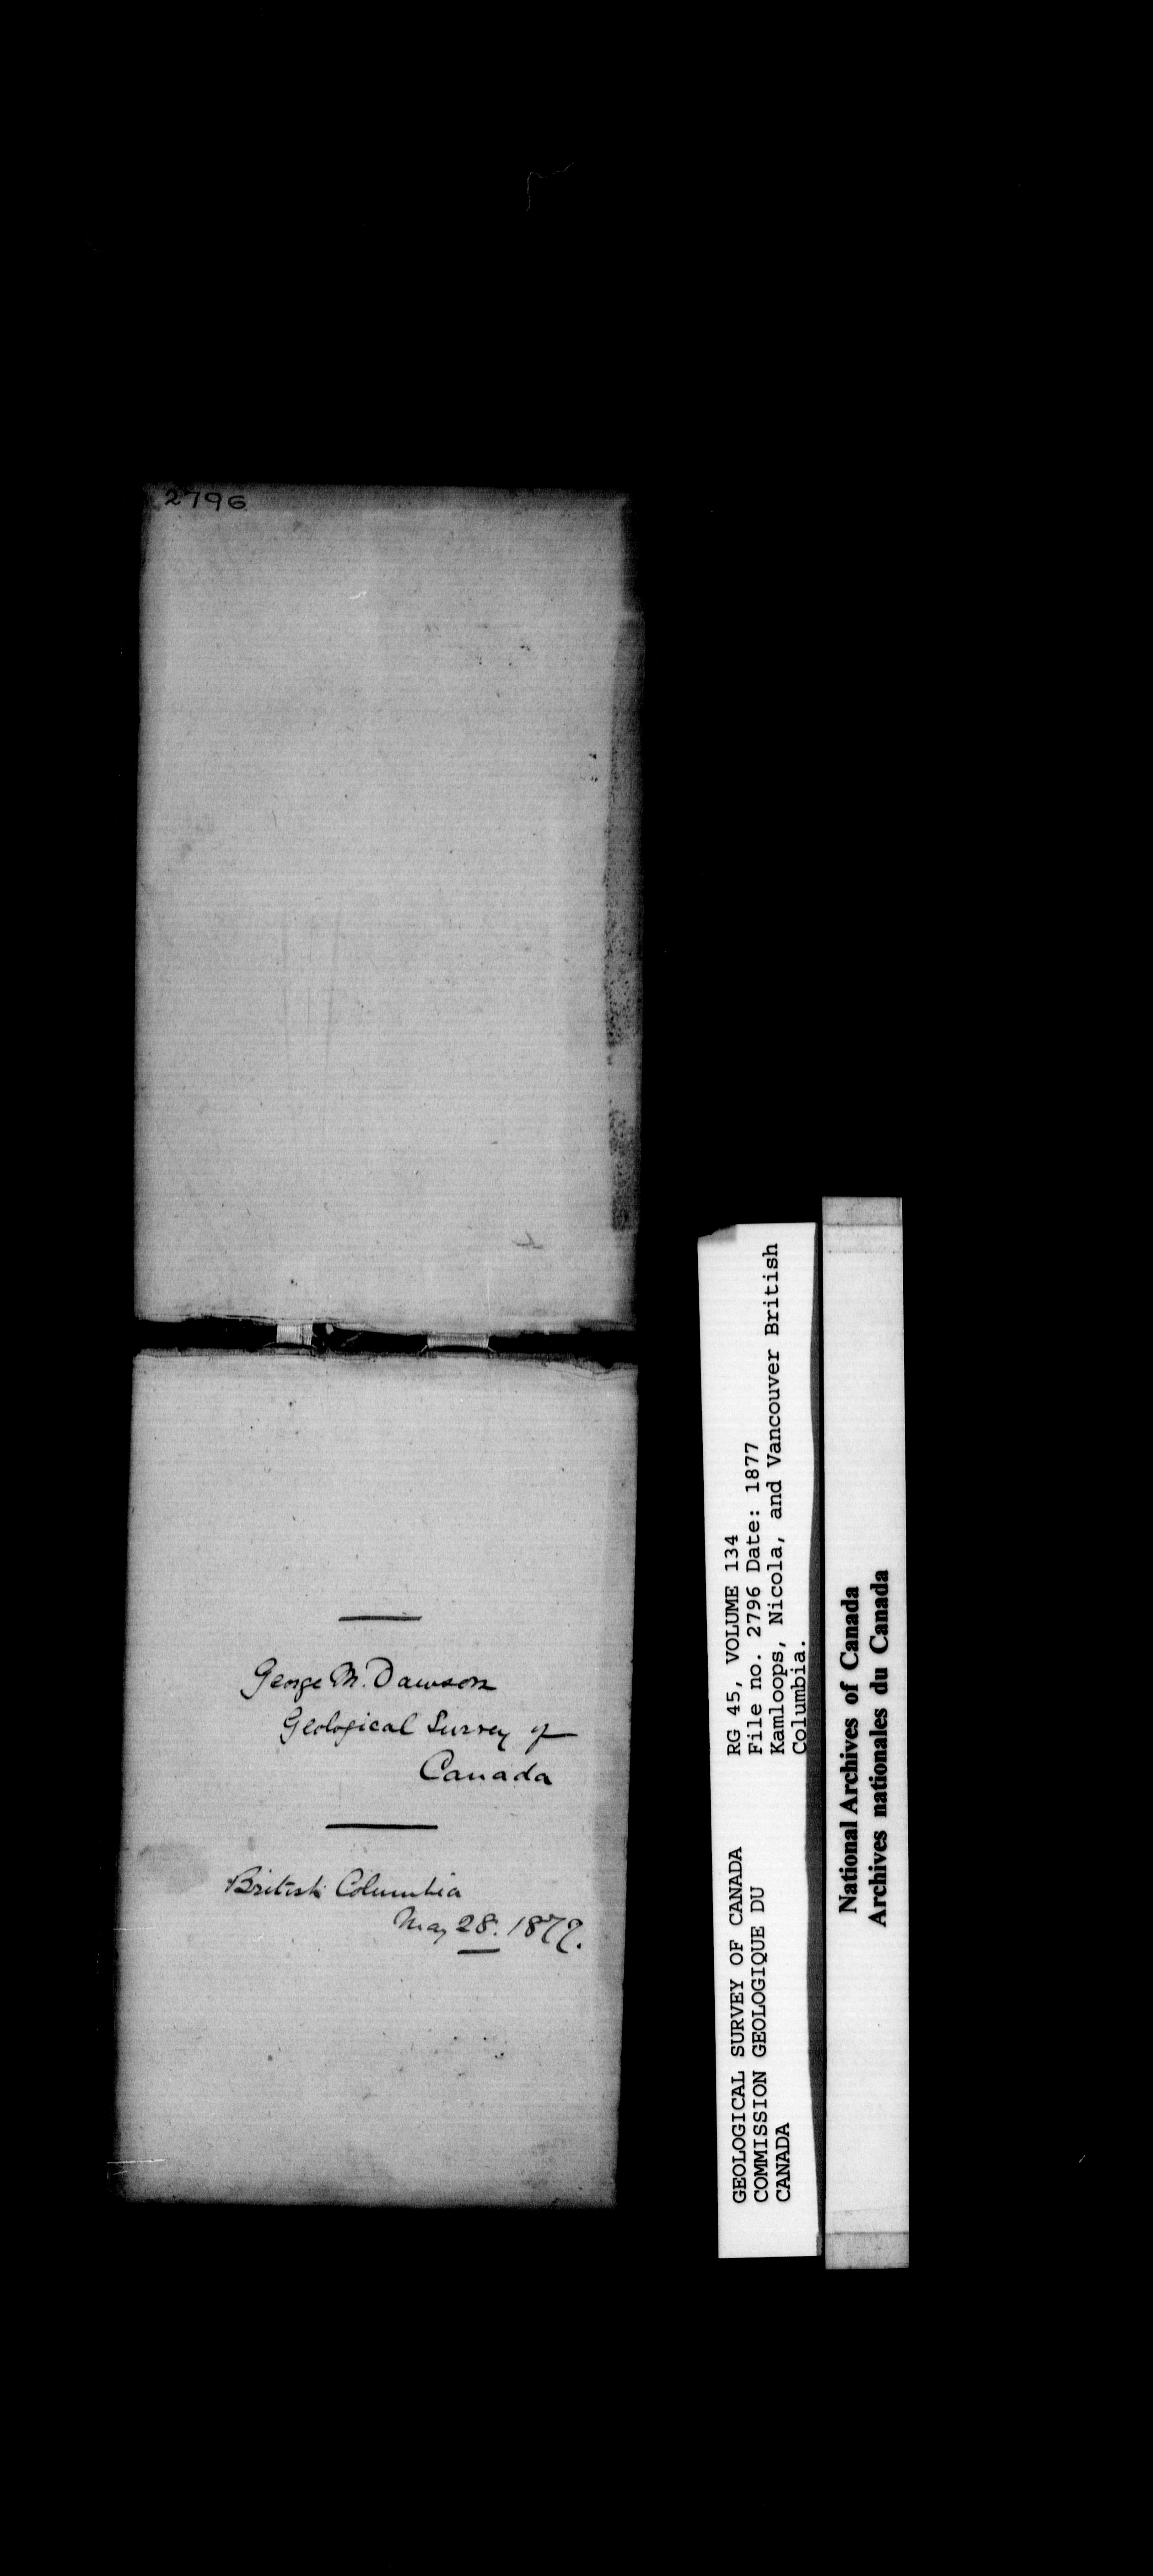 2796
George M. Dawson
Geological Survey of
Canada
British Columbia
May 28. 1877.
GEOLOGICAL SURVEY OF CANADA
COMMISSION GEOLOGIQUE DU
CANADA
RG 45, VOLUME 134
File no. 2796 Date: 1877
Kamloops, Nicola, and Vancouver British
Columbia.
National Archives of Canada
Archives nationales du Canada